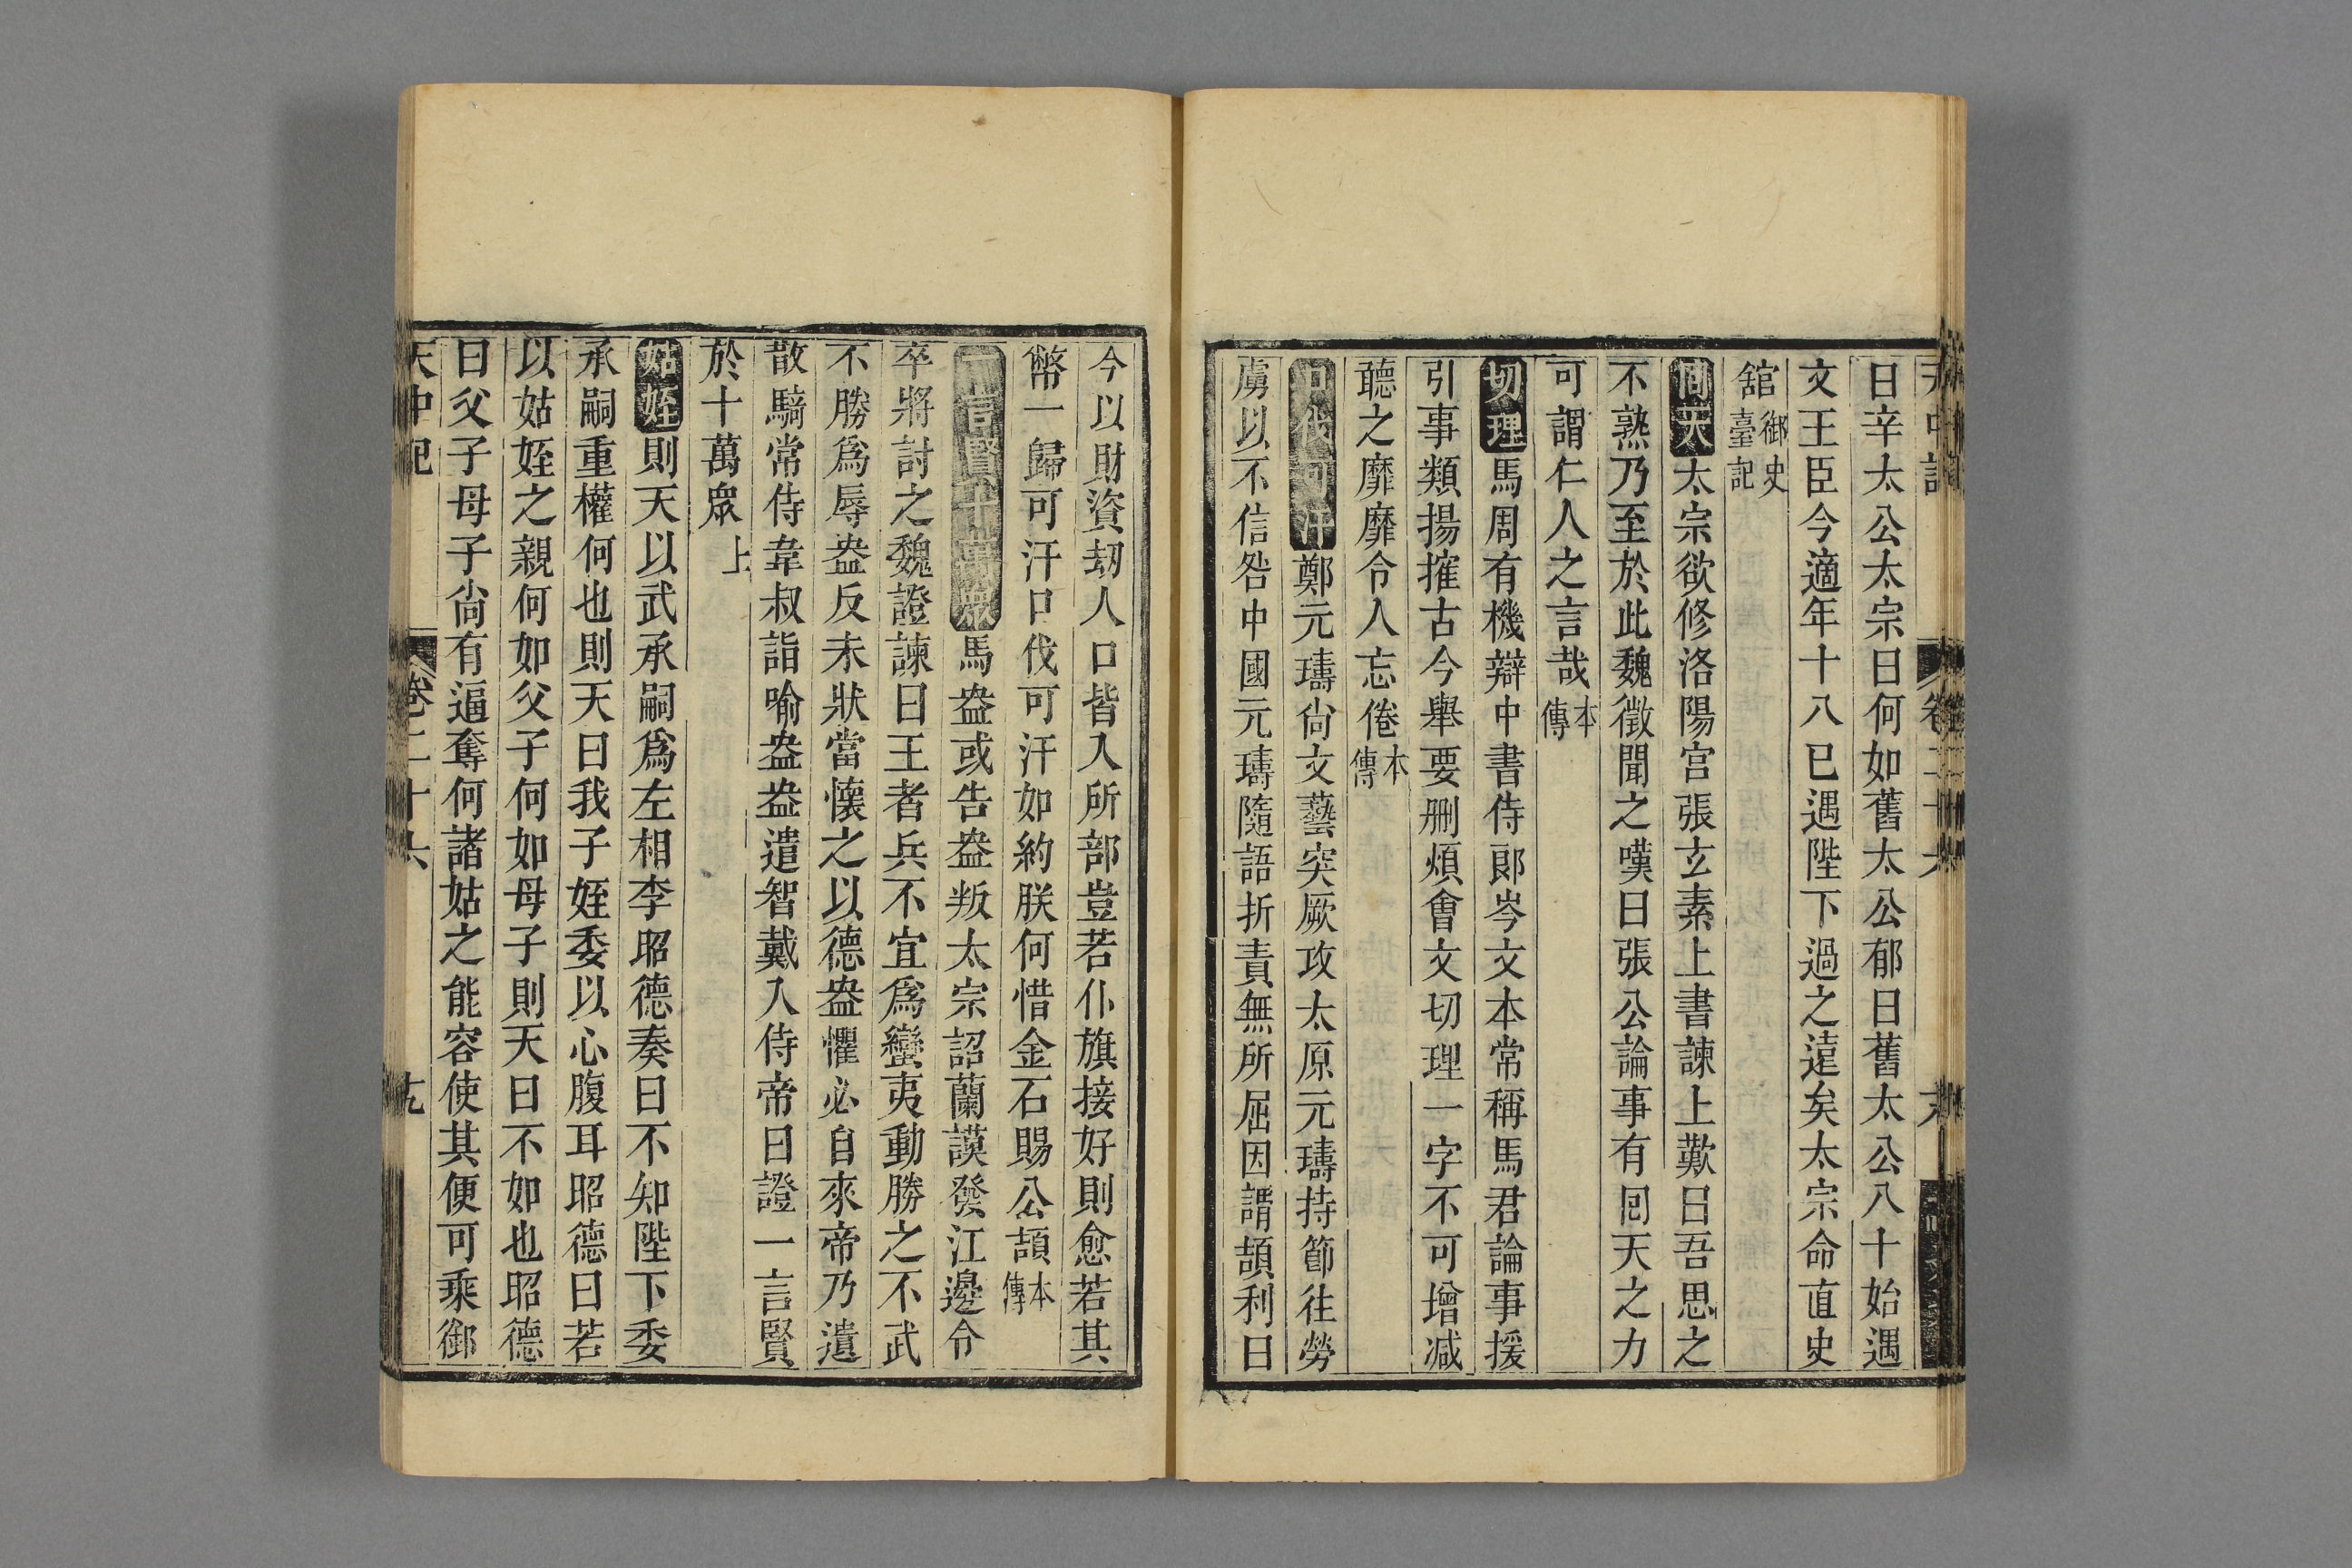 曰辛太公太宗曰何如舊太公郁曰舊太公八十始遇
文王臣今適年十八已遇陛下過之遠矣太宗命直史
舘御史臺記
回天太宗欲修洛陽宫張玄素上書諫上歎曰吾思之
不熟乃至於此魏徵聞之嘆曰張公論事有囘天之力
可謂仁人之言哉本傳
切理馬周有機辯中書侍郎岑文本常稱馬君論事援
引事類揚搉古今舉要刪煩會文切理一字不可增减
聽之靡靡令人忘倦本傳
口伐可汗鄭元璹尙文藝突厥攻太原元璹持節往勞
虜以不信咎中國元璹隨語折責無所屈因謂頡利曰
今以財資刼人口皆入所部豈若仆旗接好則愈若其
幣一歸可汗口伐可汗如約朕何惜金石賜公頡本傳
一言賢十萬衆馬盎或告盎叛太宗詔蘭謨發江邊令
卒將討之魏證諫曰王者兵不宜爲蠻夷動勝之不武
不勝爲辱盎反未狀當懷之以德盎懼必自來帝乃遣
散騎常侍韋叔諧喻盎盎遣智戴入侍帝曰證一言賢
於十萬眾上
姑姪則天以武承嗣爲左相李昭德奏曰不知陛下委
承嗣重權何也則天曰我子姪委以心腹耳昭德曰若
以姑姪之親何如父子何如母子則天曰不如也昭德
曰父子母子尙有逼奪何諸姑之能容使其便可乘御
天中記 卷二十六